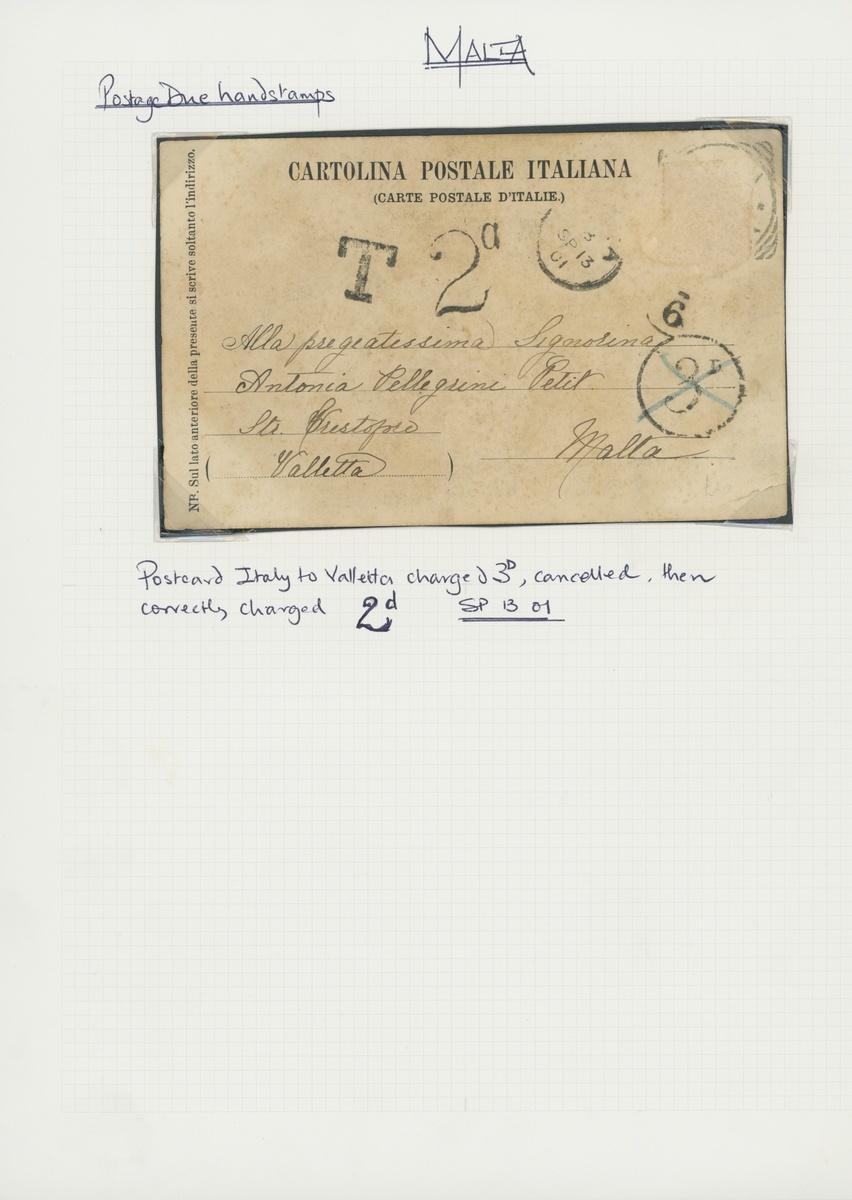 MALTA
Postage Due handstamps
NB. Sul lato anteriore della presente si scrive soltanto l'indirizzo.
CARTOLINA POSTALE ITALIANA
(CARTE POSTALE D'ITALIE.)
T 2d
3
SP 13
01
6
3D
Alla pregeatessima Signorina
Antonia Pellegrini Petit
Str. Cristoforo
Malta
(Valletta)
Postcard Italy to Valletta charged 3D, cancelled, then
correctly charged 2d SP 13 01